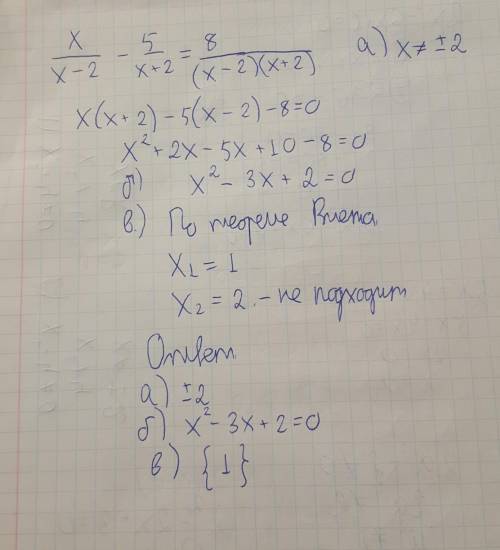 x/(x-2) - 5/(x+2) = 8/((x-2)(x+2)) а) x ≠ ±2
x(x+2) - 5(x-2) - 8 = 0
x² + 2x - 5x + 10 - 8 = 0
б) x² - 3x + 2 = 0
в.) По теореме Виета
x₁ = 1
x₂ = 2. - не подходит
Ответ
а) ±2
б) x² - 3x + 2 = 0
в) {1}